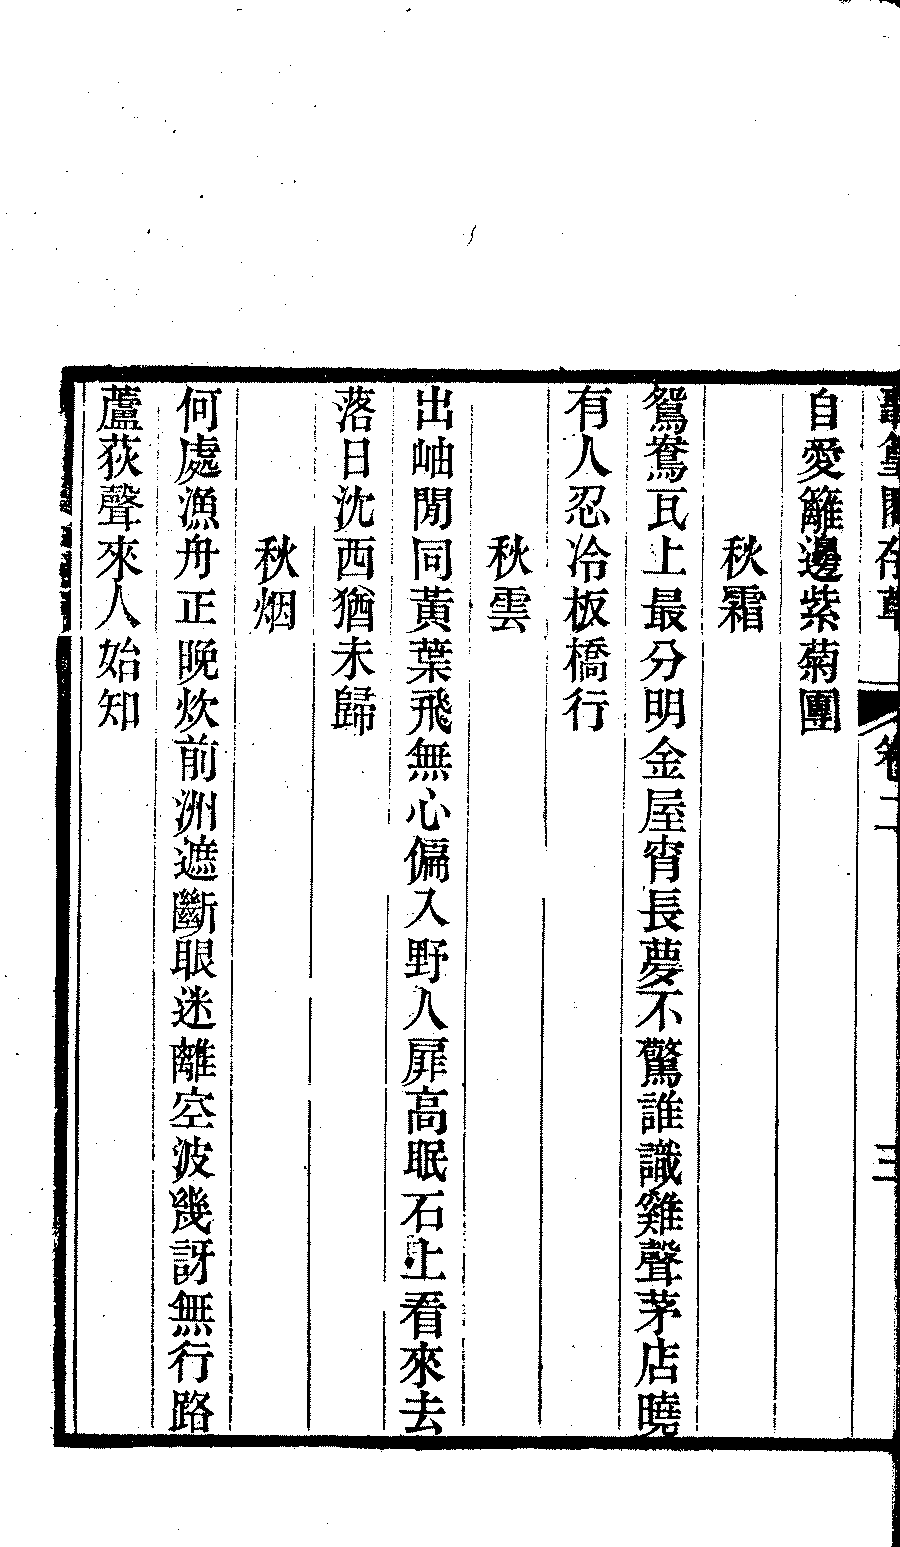 存草
卷二
三
自愛籬邊紫菊團
秋霜
鴛鴦瓦上最分明金屋宵長夢不驚誰識雞聲茅店曉
有人忍冷板橋行
秋雲
出岫閒同黃葉飛無心偏入野人扉高眠石上看來去
落日沈西猶未歸
秋烟
何處漁舟正晚炊前洲遮斷眼迷離空波幾訝無行路
蘆荻聲來人始知